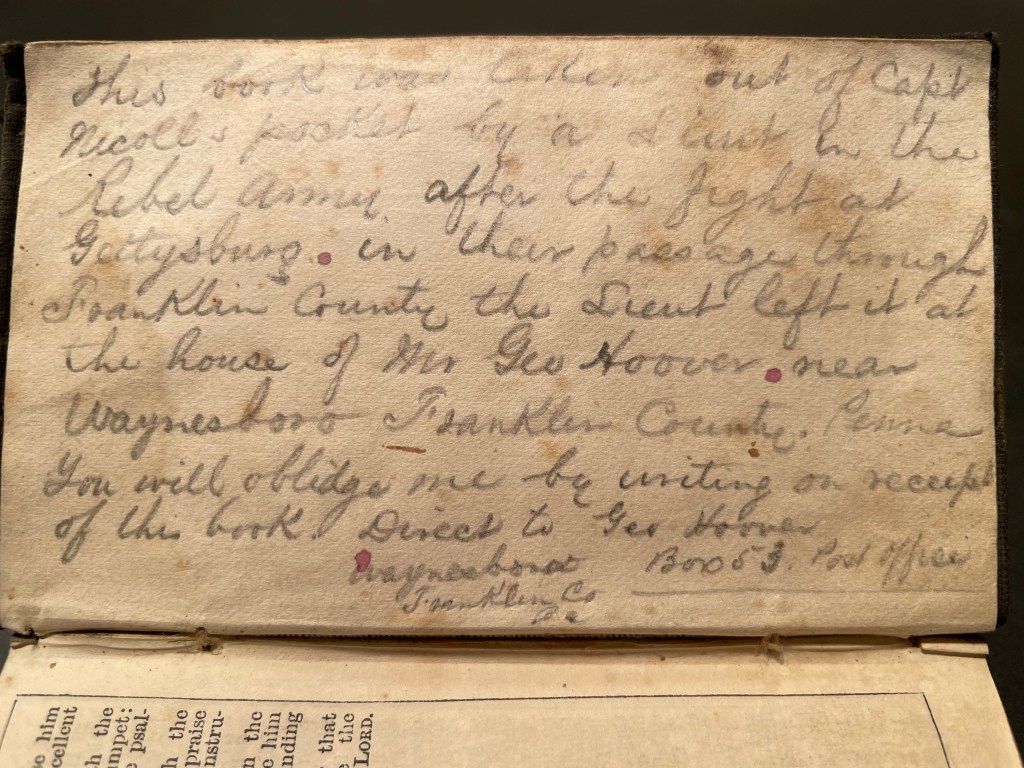 This book was taken out of Capt
Nicolls pocket by a Lieut in the
Rebel Army. after the fight at
Gettysburg. in their passage through
Franklin County the Lieut left it at
the house of Mr Geo Hoover. near
Waynesboro Franklin County. Penna
You will oblidge me by writing on receipt
of this book. Direct to Geo Hoover
Waynesboro Box 53. Post Office
Franklin Co
Pa
e him
cellent
h the
mpet:
e psal-
h the
praise
nstru-
n the
e him
nding
that
e the
LORD.